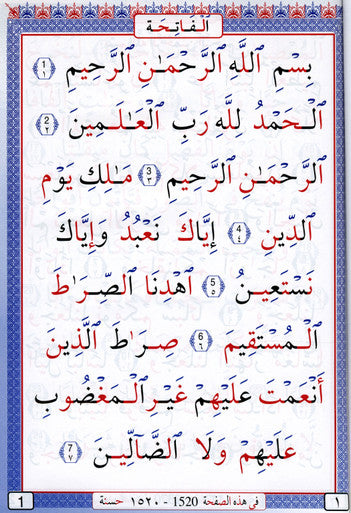 اَلْفَاتِحَة
بِسْمِ ٱللَّهِ ٱلرَّحْمَـٰنِ ٱلرَّحِيمِ 1 ١
ٱلْـحَمْدُ لِلَّهِ رَبِّ ٱلْعَـٰلَـمِينَ 2 ٢
ٱلرَّحْمَـٰنِ ٱلرَّحِيمِ 3 ٣ مَـٰلِكِ يَوْمِ
ٱلدِّينِ 4 ٤ إِيَّاكَ نَعْبُدُ وَإِيَّاكَ
نَسْتَعِيـنُ 5 ٥ ٱهْدِنَا ٱلصِّـرَ ٰطَ
ٱلْـمُسْتَقِيمَ 6 ٦ صِـرَ ٰطَ ٱلَّذِينَ
أَنْعَمْتَ عَلَيْهِمْ غَيْـرِ ٱلْـمَغْضُوبِ
عَلَيْهِمْ وَلَا ٱلضَّآلِّيـنَ 7 ٧
1 في هذه الصفحة 1520 - ١٥٢٠ حسنة ١